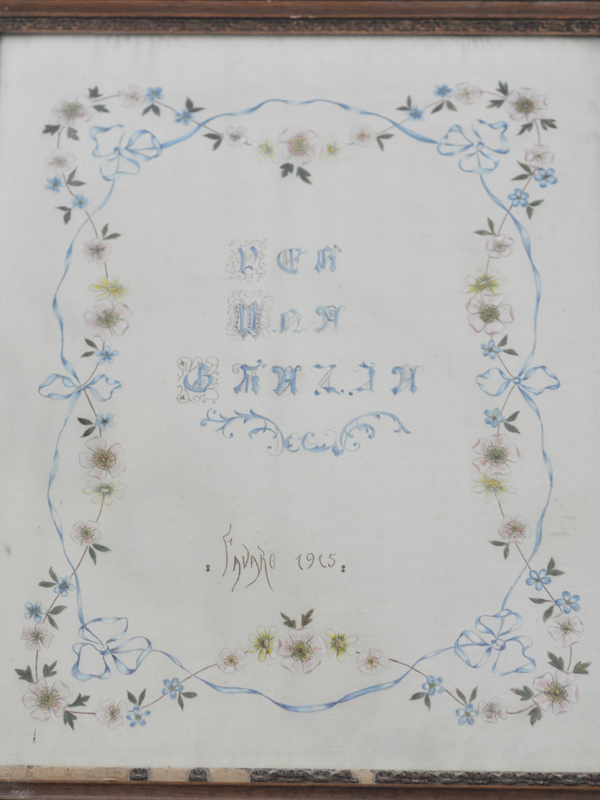 PER
UNA
GRAZIA
: FAVARO 1915 :